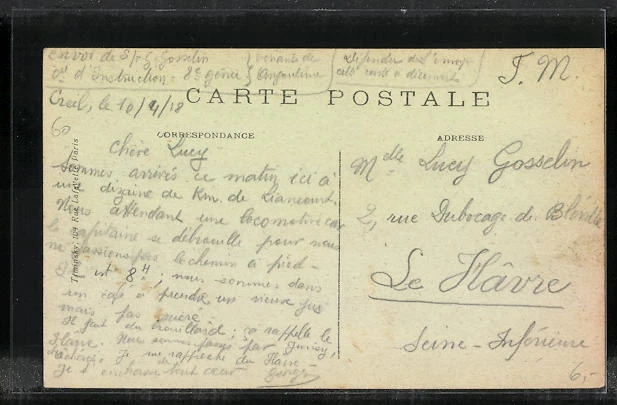 Envoi de S/Lt Gosselin
venants de
Argentine
d'Instruction - 8e génie
F. M.
Creil, le 10/4/18
CARTE POSTALE
CORRESPONDANCE
ADRESSE
60
Chère Lucy
Sommes arrivés ce matin ici à
une dizaine de Km. de Liancourt.
Nous attendant une locomotive car
le capitaine se débrouille pour nous
ne fassions pas le chemin à pied -
Il est 8H; nous sommes dans
un café à prendre un vieux jus
mais pas sucré.
Il fait du brouillard; ça rappelle le
Hâvre. Nous sommes passés par
Je me rapproche du Hâvre
Je t'embrasse tout cœur
Georges
Melle Lucy Gosselin
2, rue Dubocage de Bléville
Le Hâvre
Seine-Inférieure
6,-
104 Rue Lafayette Paris